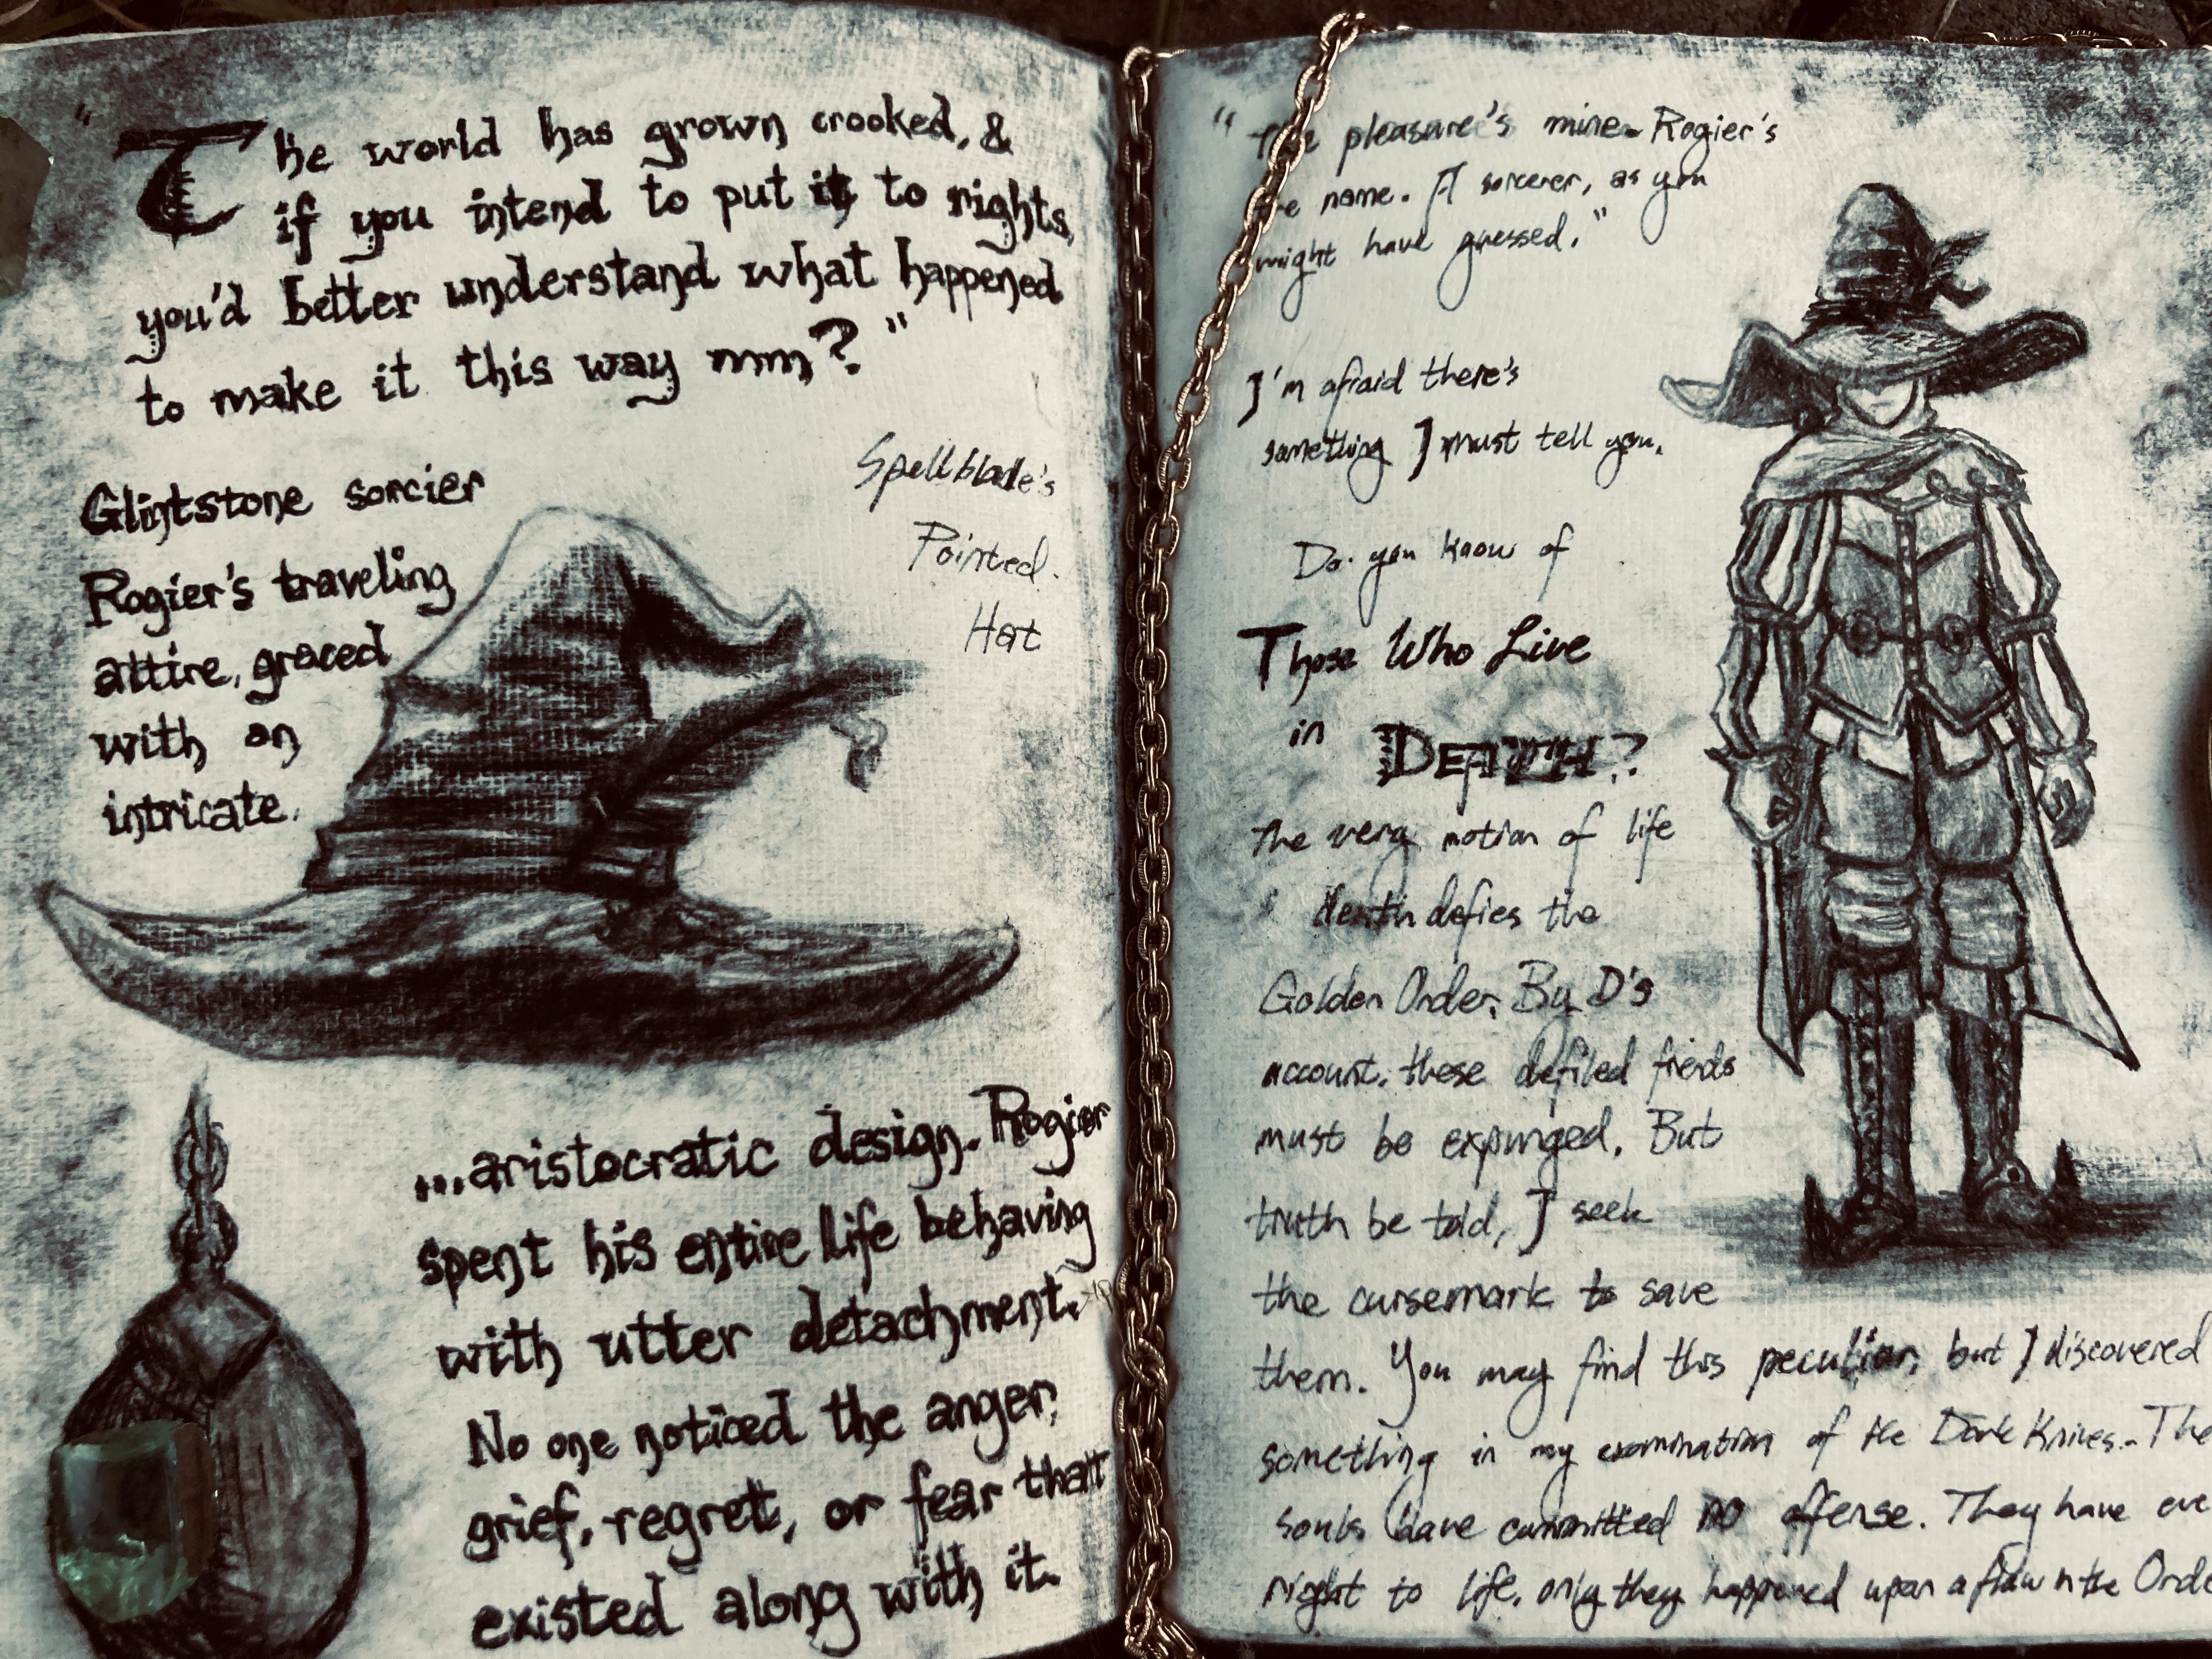 "The world has grown crooked, &
if you intend to put it to rights,
you'd better understand what happened
to make it this way mm?"
Spellblade's
Pointed.
Hat
Glintstone sorcier
Rogier's traveling
attire, graced
with an
intricate.
...aristocratic design. Rogier
spent his entire life behaving
with utter detachment.
No one noticed the anger,
grief, regret, or fear that
existed along with it.
"The pleasure's mine. Rogier's
name. A sorcerer, as you
might have guessed."
I'm afraid there's
something I must tell you.
Do you know of
Those Who Live
in DEATH?
The very motion of life
death defies the
Golden Order. By D's
account, these defiled
must be expunged. But
truth be told, I seek
the cursemark to save
them. You may find this peculiar, but I discovered
something in my examination of the Knives. The
souls have committed NO offense. They have eve
right to life, only they happened upon a flaw in the Orde